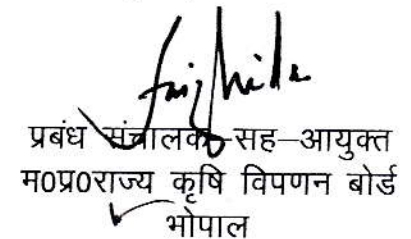 प्रबंध संचालक-सह-आयुक्त
म0प्र0राज्य कृषि विपणन बोर्ड
भोपाल